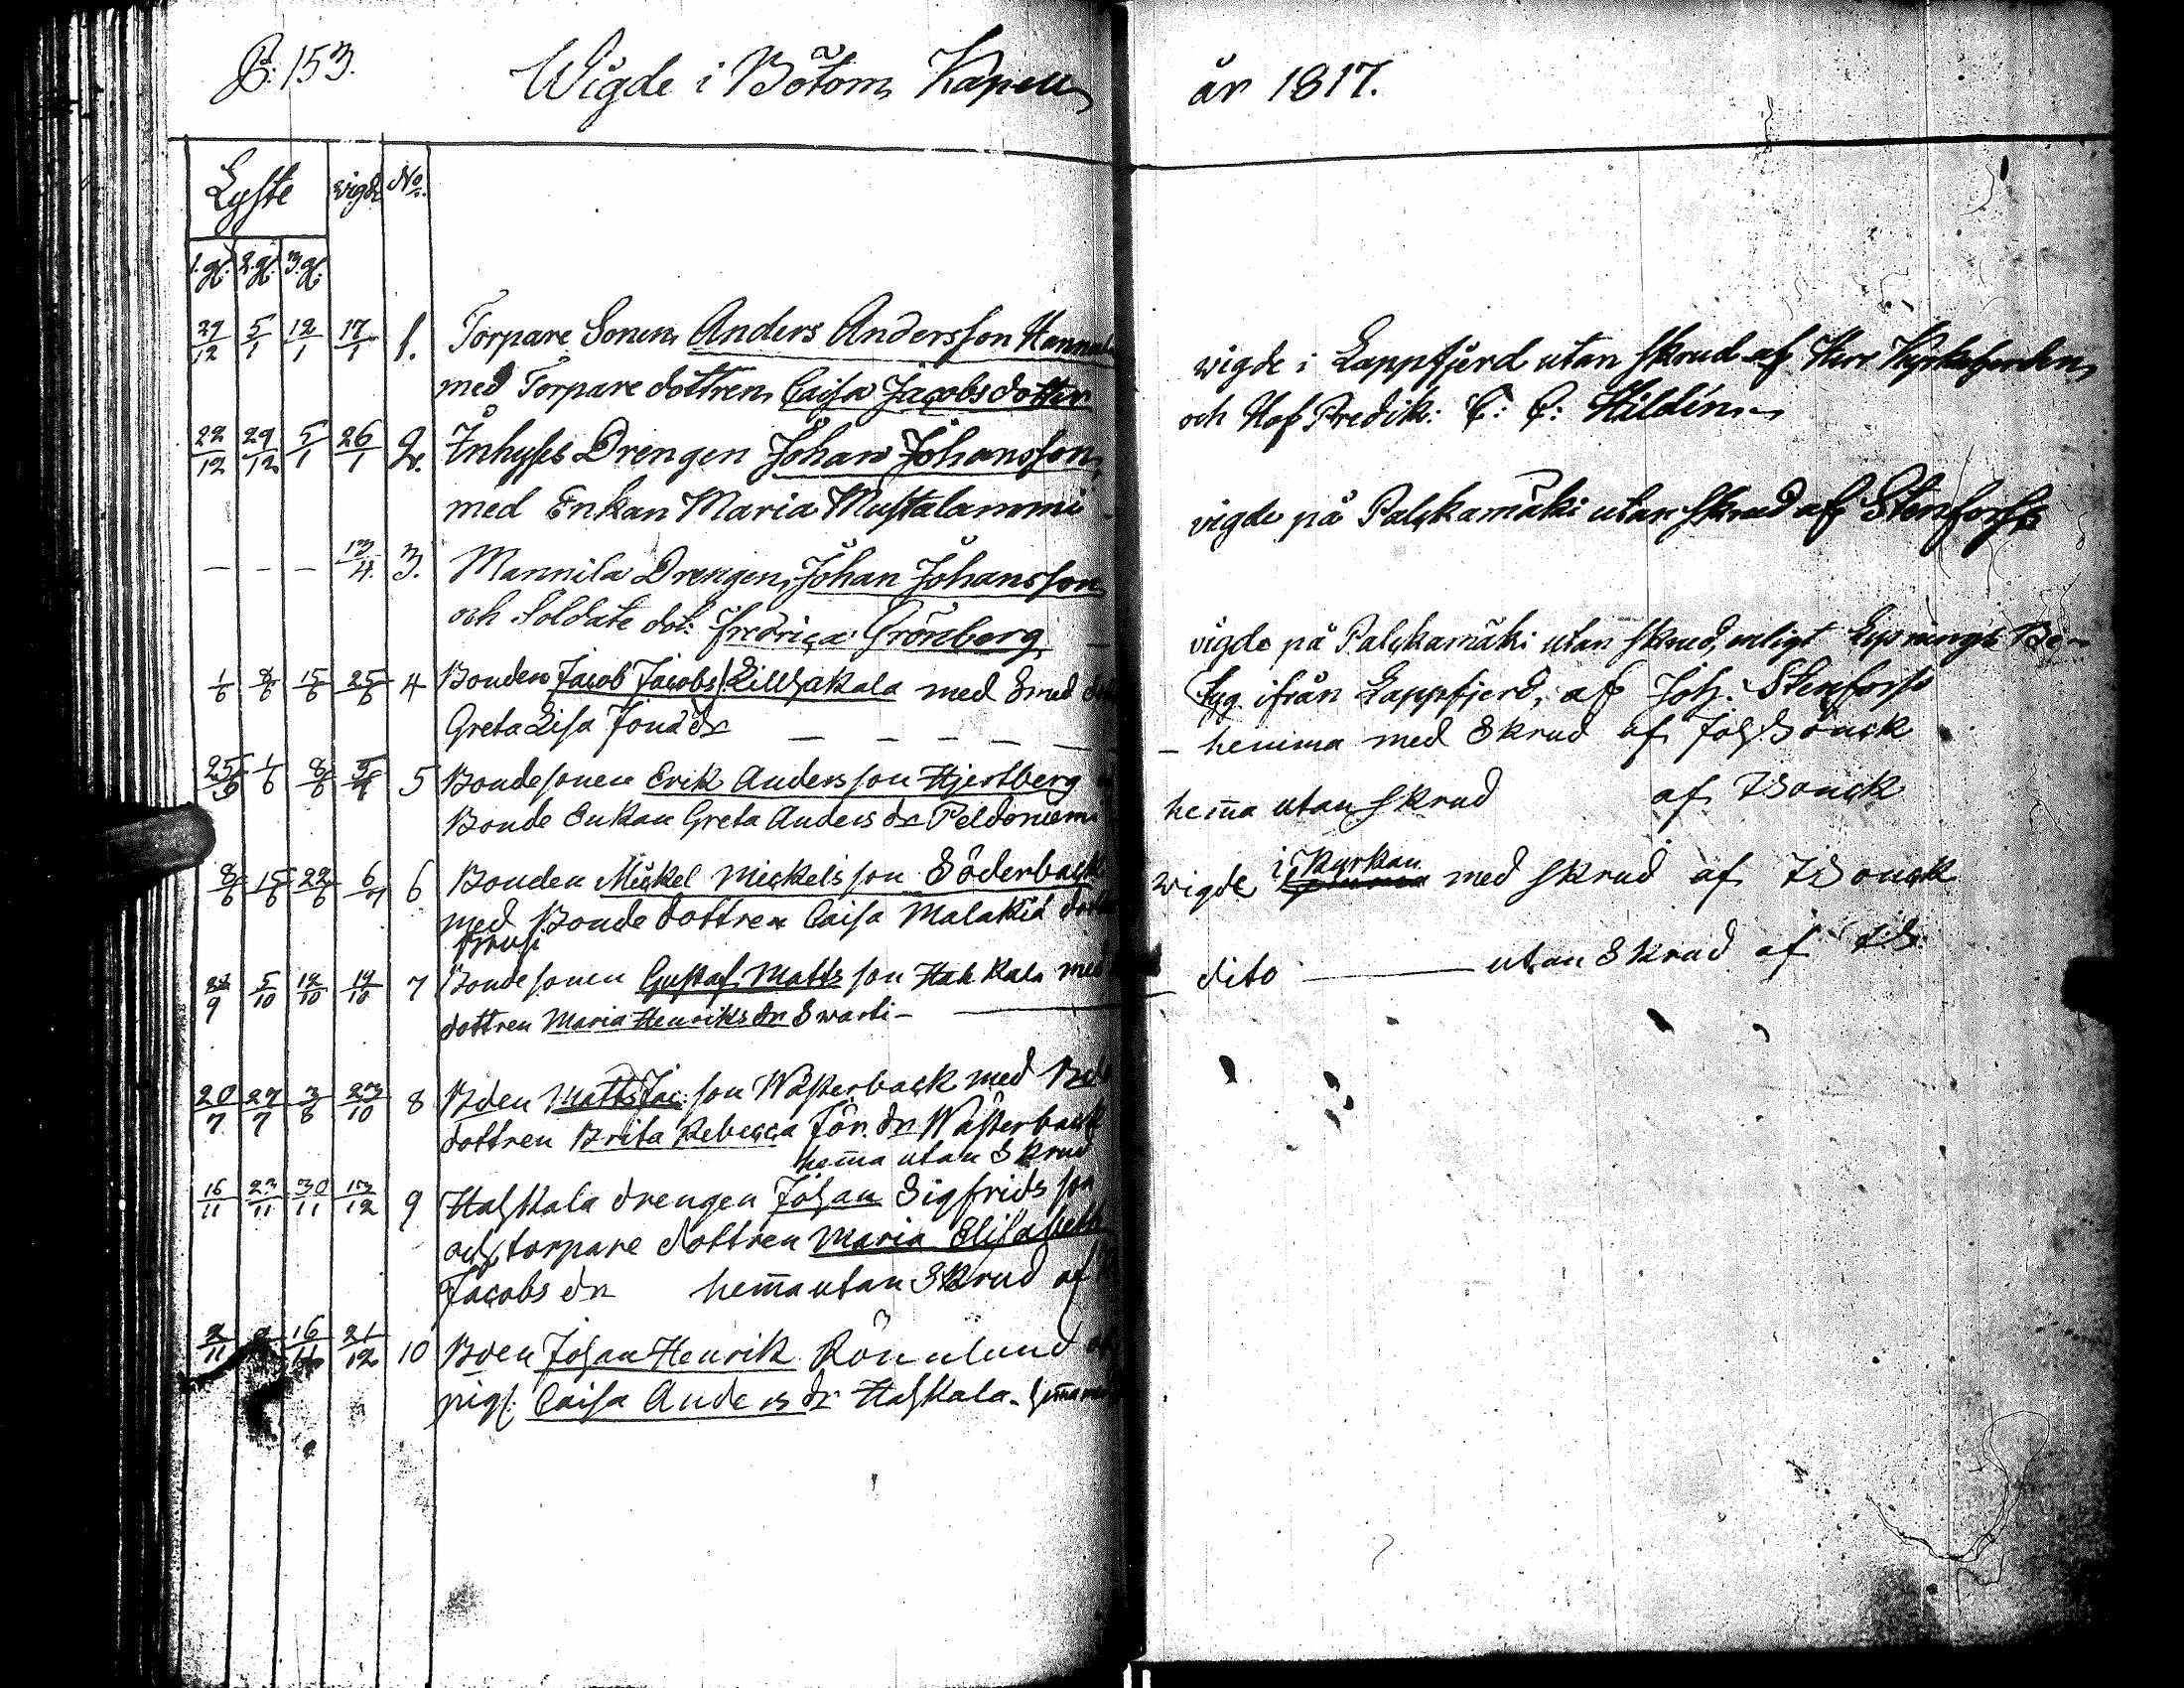 P: 153. Wigde i Bötom Kapell år 1817.
Lyste wigde No.
1. g. 2. g. 3. g.
29/12 5/1 12/1 17/1 1. Torpare Sonen Anders Andersson
med Torpare dottren Caisa Jacobsdotter
wigde i Lappfjerd utan skrud af Herr Kyrkoherden
och Hof Predik: C: C: Hildén
22/12 29/12 5/1 26/1 2. Inhyses Drengen Johan Johansson
med Enkan Maria Mustalammi
vigde på Palckamäki utan skrud af Stenforss
— — — 13/4. 3. Mannila Drengen Johan Johansson
och Soldate dot: Fredrica Grönberg —
vigde på Palckamäki utan skrud, enligt Lysnings Be-
tyg ifrån Lappfjerd, af Joh: Stenforss
1/6 8/6 15/6 25/6 4 Bonden Jacob Jacobs: Lillhakala med
Greta Lisa Jonæ dr — — — — —
– hemma med Skrud af Joh Bonck
25/5 1/6 8/6 5 Bondesonen Erik Andersson Hjertberg
Bonde Enkan Greta Anders dr Peldoniemi
hem̄a utan skrud af Bonck
8/6 15/6 22/6 6/7 6 Bonden Mickel Mickelsson Söderback
med Bonde dottren Caisa Malakia
wigde i Kyrkan med skrud af Bonck
5/10 12/10 19/10 7 Bondesonen Gustaf Mattsson Hakkala med
dottren Maria Henriks dr Swarti –
dito — utan Skrud af B.
20/7 27/7 3/8 23/10 8 Bden Matts Jac: son Wästerback med
dottren Brita Rebecca Jön. dr Wästerback
hem̄a utan Skrud
16/11 23/11 30/11 13/12 9 Hakkala drengen Johan Sigfridsson
och torpare dottren Maria Elisabeth
Jacobs dr hem̄a utan Skrud af
2/11 9 16/11 21/12 10 Bden Johan Henrik Rönnlund
pig: Caisa Anders dr Hakkala. hem̄a